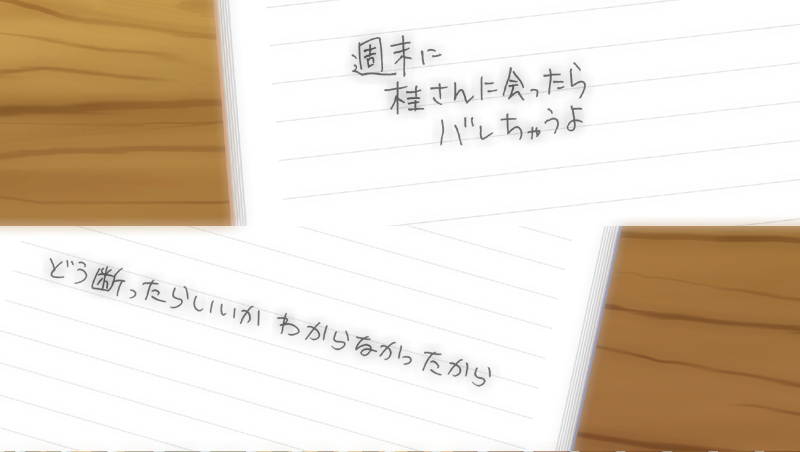 週末に
桂さんに会ったら
バレちゃうよ
どう断ったらいいか わからなかったから